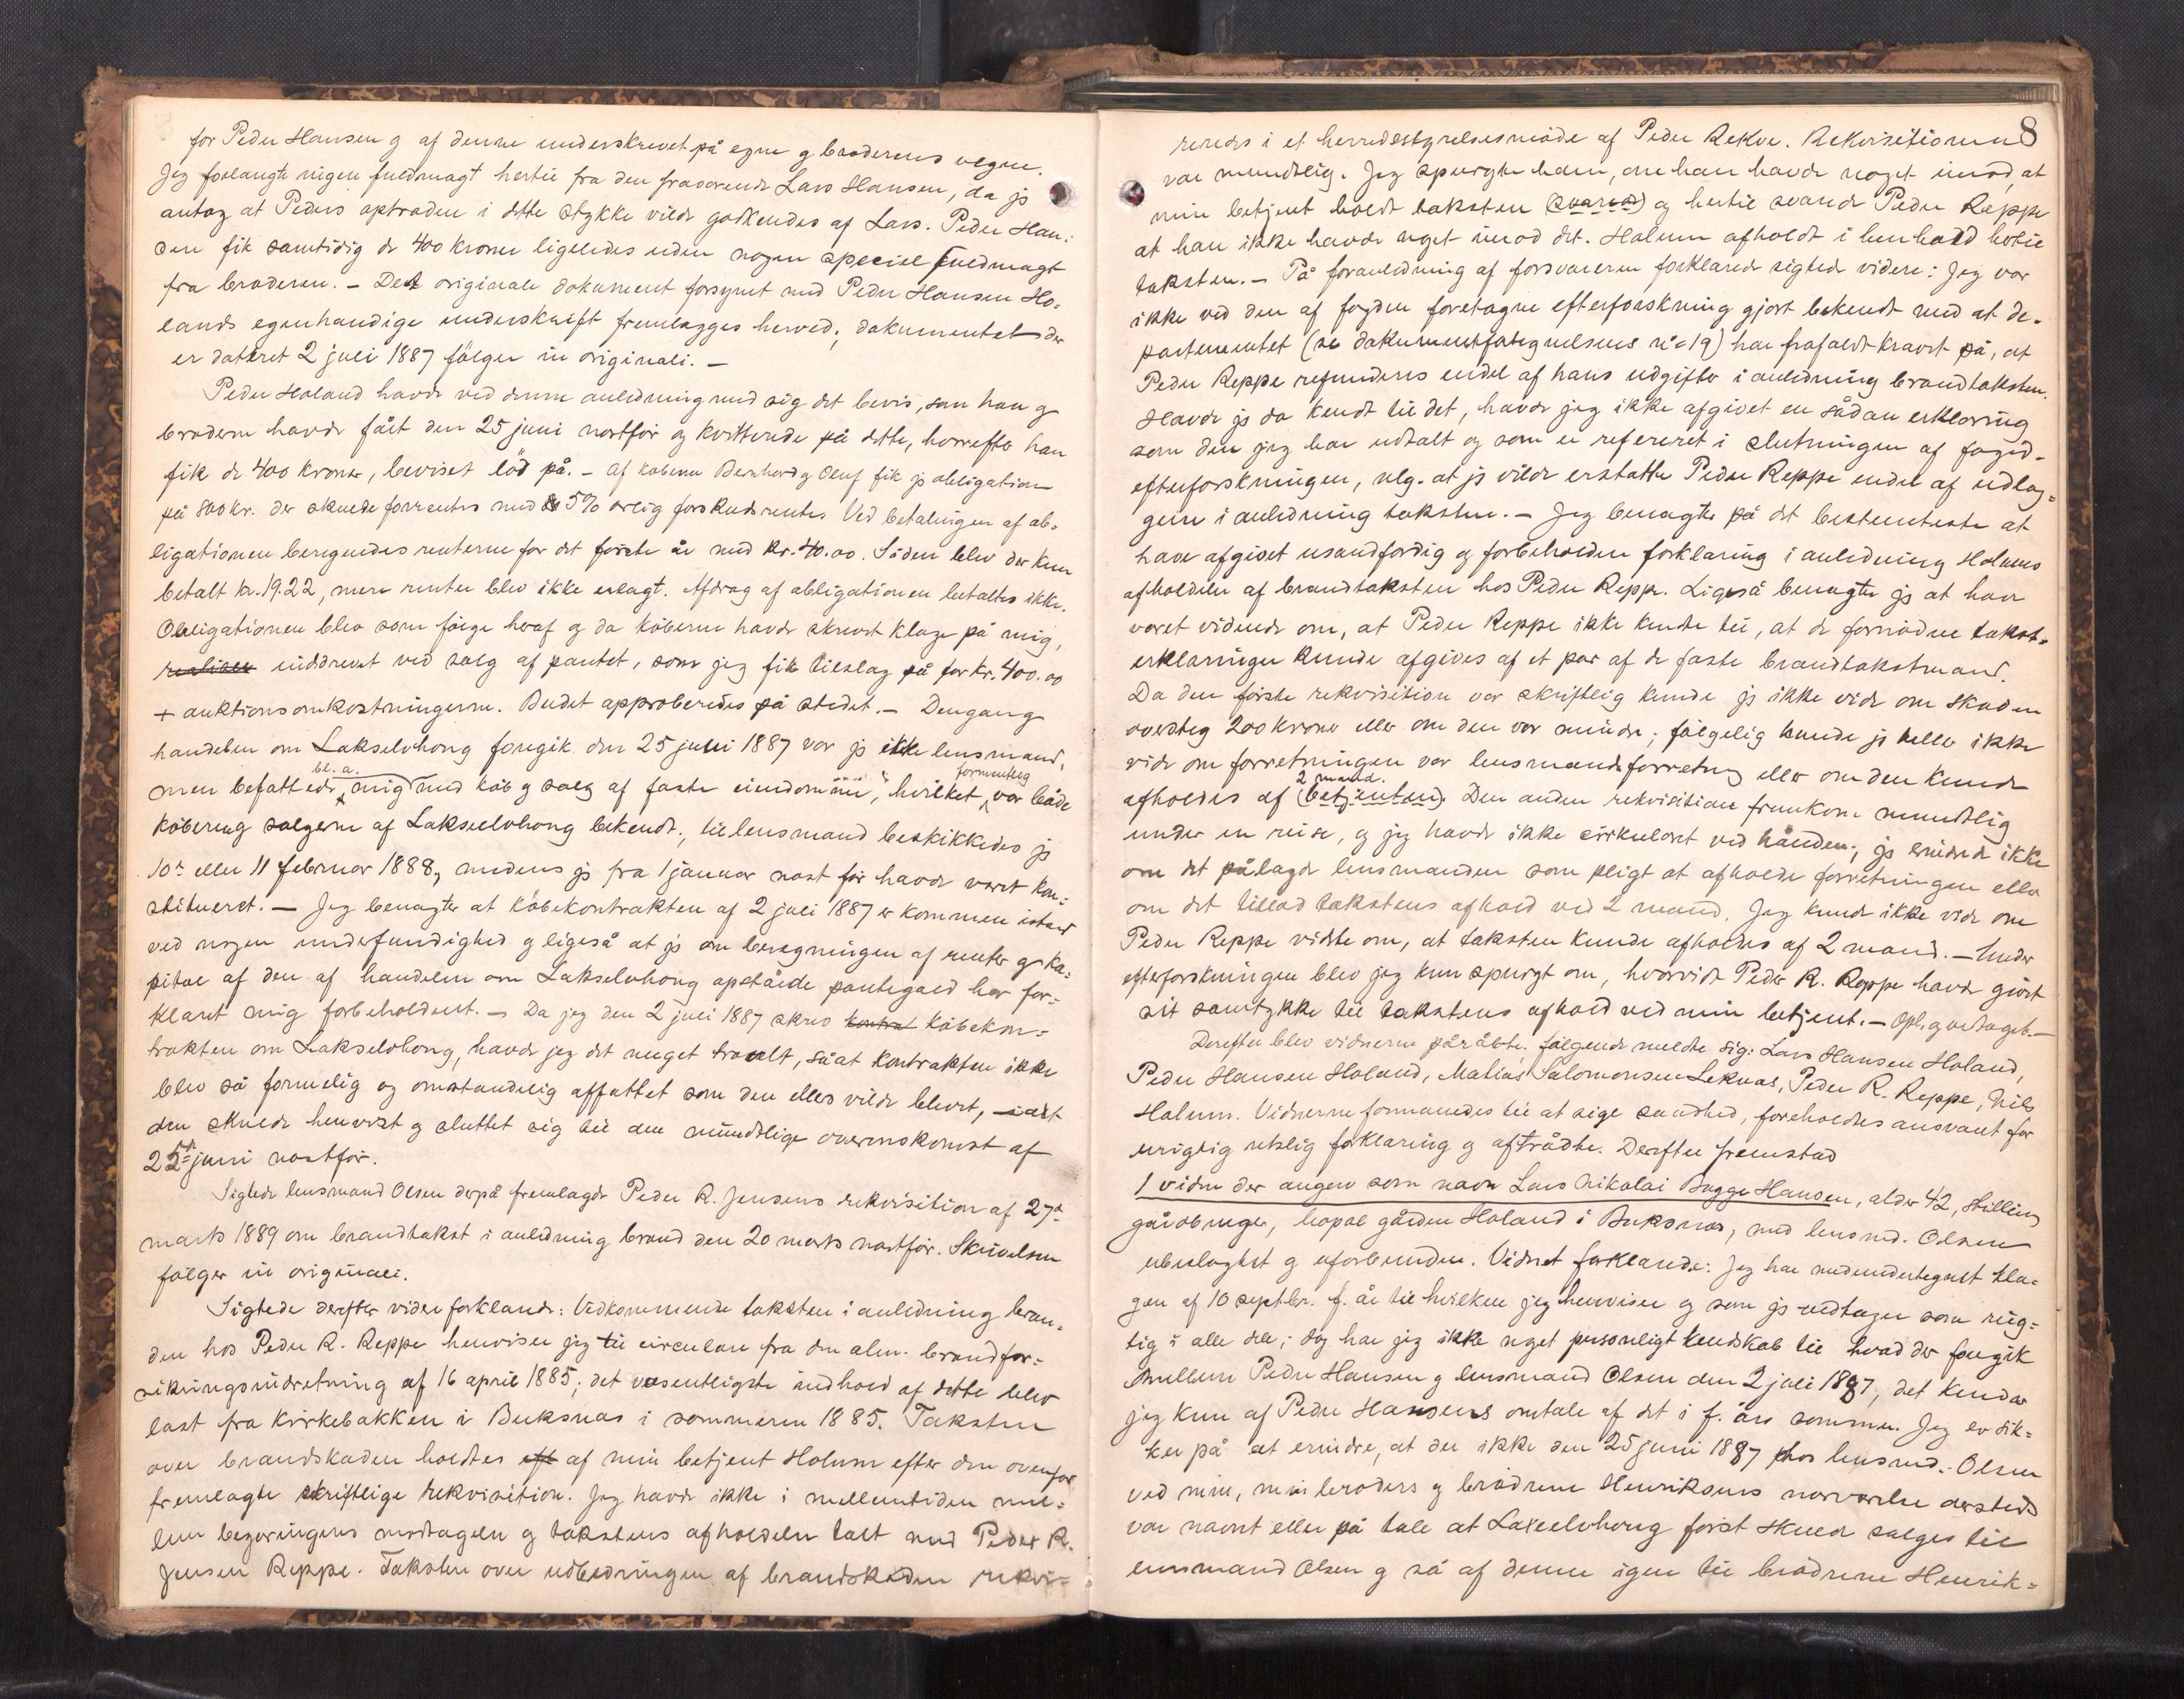 for Peder Hansen og af denne underskrevet på egne og broderens vegne.
Jeg forlangte ingen fuldmagt hertil fra den fraværende Lars Hansen, da jg
antog at Peders optræden i dette stykke vilde godkendes af Lars. Peder Han-
sen fik samtidig de 400 kroner ligeledes uden nogen speciel fuldmagt
fra broderen. – Det originale dokument forsynet med Peder Hansen Ho-
lands egenhændige underskrift fremlægges herved; dokumentet der
er dateret 2 juli 1887 følger in originali. –
Peder Holand havde ved denne anledning med sig det bevis, som han og
broderen havde fåt den 25 juni nestfør og kvitterede på dette, hvorefter han
fik de 400 kroner, beviset lød på. – Af køberne Bernhard og Oluf fik jg obligation
på 800 kr. der skulde forrentes med 5% årlig forskudsrente. Ved betalingen af ob-
ligationen beregnedes renterne for det første år med kr. 40.00. Siden blev der kun
betalt kr. 19.22, mere renter blev ikke erlagt. Afdrag af obligationen betaltes ikke.
Obligationen blev som følge heraf og da køberne havde skrevet klage på mig,
realiser inddrevet ved salg af pantet, som jeg fik tilslag på for kr. 400.00
+ auktionsomkostningerne. Budet approberedes på stedet. – Dengang
handelen om Lakselvhong foregik den 25 juni 1887 var jg ikke lensmand,
men befattede bl. a. mig med køb og salg af faste eiendomme, hvilket formentlig var både
køberne og sælgerne af Lakselvhong bekendt; til lensmand beskikkedes jg
10de eller 11 februar 1888, medens jg fra 1 januar næst før havde været kon-
stitueret. – Jeg benægter at købekontrakten af 2 juli 1887 er kommen istand
ved nogen underfundighed og ligeså at jg om beregningen af renter og ka-
pital af den af handelen om Lakselvhong opståede pantegæld har for-
klaret mig forbeholdent. – Da jeg den 2 juli 1887 skrev kontrat købekon-
trakten om Lakselvhong, havde jeg det meget travelt, såat kontrakten ikke
blev så formelig og omstændelig affattet som den ellers vilde blevet,
den skulde henvist og sluttet sig til den mundtlige overenskomst af
25de juni næstfør.
Sigtede lensmand Olsen derpå fremlagde Peder R. Jensens rekvisition af 27de
marts 1889 om brandtakst i anledning brand den 20 marts næstfør. Skrivelsen
følger in originali.
Sigtede derefter videre forklarede: Vedkommende taksten i anledning bran-
den hos Peder R. Reppe henviser jeg til circulære fra den alm. brandfor-
sikringsindretning af 16 april 1885; det væsentligste indhold af dette blev
læst fra kirkebakken i Buksnæs i sommeren 1885. Taksten
over brandskaden holdtes eft af min betjent Holum efter den ovenfor
fremlagte skriftlige rekvisition. Jeg havde ikke i mellemtiden mel-
lem begjæringens modtagelse og takstens afholdelse talt med Peder R.
Jensen Reppe. Taksten over udbedringen af brandskaden rekvi-
8
reredes i et herredsstyrelsesmøde af Peder Rekve. Rekvisitionen
var mundtlig. Jeg spurgte ham, om han havde noget imod, at
min betjent holdt taksten (svared) og hertil svarede Peder Reppe
at han ikke havde noget imod det. Holum afholdt i henhold hertil
taksten. – På foranledning af forsvareren forklarede sigtede videre: Jeg var
ikke ved den af fogden foretagne efterforskning gjort bekendt med at de-
partementet (se dokumentfortegnelsens no 19) har frafaldt kravet på, at
Peder Reppe refunderes endel af hans udgifter i anledning brandtaksten.
Havde jg da kendt til det, havde jeg ikke afgivet en sådan erklæring
som den jeg har udtalt og som er refereret i slutningen af fogd-
efterforskningen, nlg. at jg vilde erstatte Peder Reppe endel af udlæg-
gene i anledning taksten. – Jeg benægter på det bestemteste at
have afgivet usandfærdig og forbeholden forklaring i anledning Holums
afholdelse af brandtaksten hos Peder Reppe. Ligeså benægter jg at have
været vidende om, at Peder Reppe ikke kendte til, at de fornødne takst-
erklæringer kunde afgives af et par af de faste brandtakstmænd.
Da den første rekvisition var skriftlig kunde jg ikke vide om skaden
oversteg 200 kroner eller om den var mindre; følgelig kunde jg heller ikke
vide om forretningen var lensmandsforretning eller om den kunde
afholdes af 2 mænd. (betjenten). Den anden rekvisition fremkom mundtlig
under en reise, og jeg havde ikke cirkulæret ved hånden; jg erindrede ikke
om det pålagde lensmanden som pligt at afholde forretningen eller
om det tillod takstens afhold ved 2 mænd. Jeg kunde ikke vide om
Peder Reppe vidste om, at taksten kunde afholdes af 2 mænd. – Under
efterforskningen blev jeg kun spurgt om, hvorvidt Peder R. Reppe havde givet
sit samtykke til takstens afhold ved min betjent. – Opl. og vedtaget. –
Derefter blev vidnerne påråbte. følgende meldte sig: Lars Hansen Holand,
Peder Hansen Holand, Matias Salomonsen Leknæs, Peder R. Reppe, Nils
Holum. Vidnerne formanedes til at sige sandhed, foreholdtes ansvaret for
urigtig retslig forklaring og aftrådte. Derefter fremstod
1 vidne der angav som navn Lars Nikolai Bagge Hansen, alder 42, stilling
gårdbruger, bopæl gården Holand i Buksnæs, med lensmd. Olsen
ubeslægtet og uforbunden. Vidnet forklarede: Jeg har medundertegnet kla-
gen af 10 septbr. f. år til hvilken jeg henviser og som jg vedtager som rig-
tig i alle dele; dog har jeg ikke noget personligt kendskab til hvad der foregik
mellem Peder Hansen og lensmand Olsen den 2 juli 1887, det kender
jeg kun af Peder Hansens omtale af det i f. års sommer. Jeg er sik-
ker på at erindre, at der ikke den 25 juni 1887 hos lensmd. Olsen
ved min, min broders og brødrene Henriksens nærværelse dersteds
var nævnt eller på tale at Lakselvhong først skulde sælges til
lensmand Olsen og så af denne igen til brødrene Henrik-